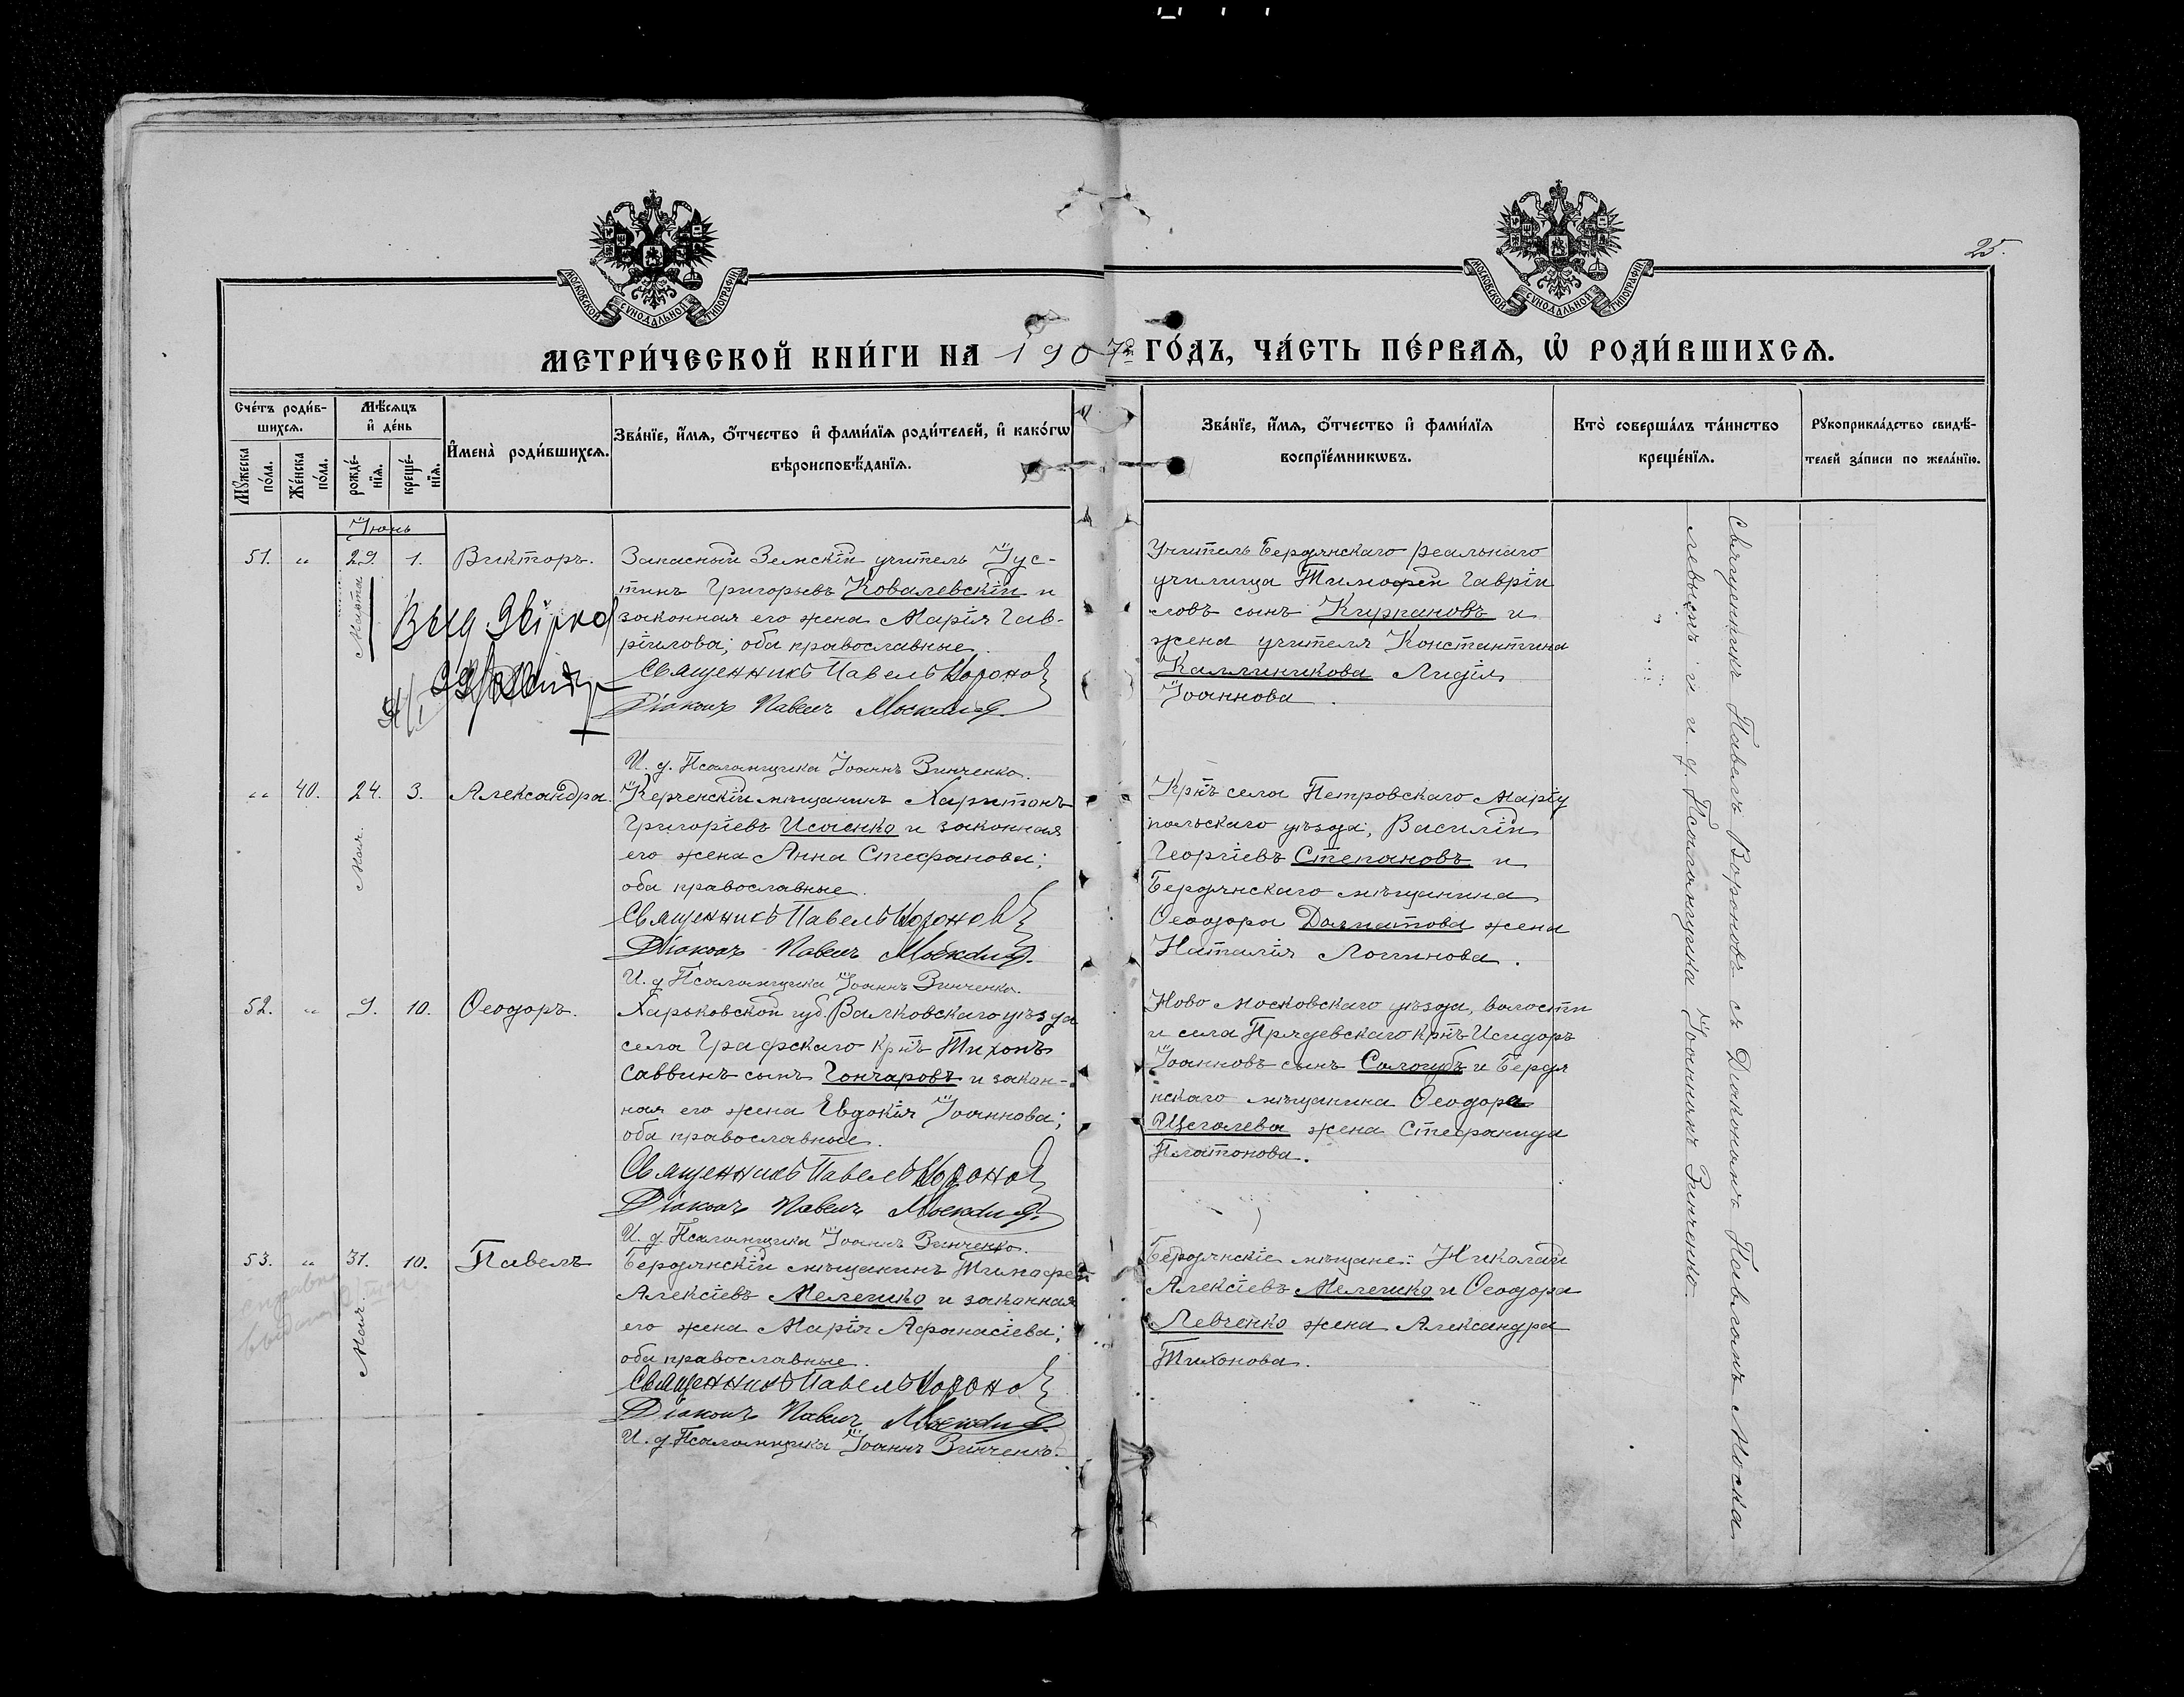 25.
МОСКОВСКОЙ СѴНОДАЛЬНОЙ ТИПОГРАФІИ
МОСКОВСКОЙ СѴНОДАЛЬНОЙ ТИПОГРАФІИ
МЕТРИ́ЧЕСКОЙ КНИ́ГИ НА 1907й ГО́ДЪ, ЧА́СТЬ ПЕ́РВАѦ, Ѡ҆ РОДИ́ВШИХСѦ.
Сче́тъ роди́в-
шихсѧ.
Мꙋ́жеска
по́ла.
Же́нска
по́ла.
Мѣ́сѧцъ
и҆ де́нь
рожде́-
нїѧ.
креще́-
нїѧ.
И҆мена̀ роди́вшихсѧ.
Зва́нїе, и҆́мѧ, ѻ҆́тчество и҆ фами́лїѧ роди́телей, и҆ како́гѡ
вѣроисповѣ́данїѧ.
Зва́нїе, и҆́мѧ, ѻ҆́тчество и҆ фами́лїѧ
воспрїе́мникѡвъ.
Кто̀ соверша́лъ та́инство
креще́нїѧ.
Рꙋкоприкла́дство свидѣ́-
телей за́писи по жела́нїю.
Іюнь
51. " 29. 1. Викторъ.
Марта
Запасный Земскій учитель Іус-
тинъ Григорьевъ Ковалевскій и
законная его жена Марія Гав-
ріилова; оба православные.
Священникъ Павелъ Воронов
Діаконъ Павелъ Москалев
И. д. Псаломщика Іоаннъ Зинченко.
Учитель Бердянскаго реальнаго
училища Тимофей Гаврiи
ловъ сынъ Курпановъ и
жена учителя Константина
Каллиникова Лидія
Іоаннова.
" 40. 24. 3. Александра.
Мая.
Керченскій мѣщанинъ Харитонъ
Григоріевъ Исаенко и законная
его жена Анна Стефанова;
оба православные.
Священникъ Павелъ Воронов
Діаконъ Павелъ Москалев
И. д Псаломщика Іоаннъ Зинченко.
Крнъ села Петровскаго Маріу
польскаго уѣзда, Василій
Георгіевъ Степановъ и
Бердянскаго мѣщанина
Ѳеодора Долматова жена
Наталія Логинова.
52. " 9. 10. Ѳеодоръ.
Харьковской губ. Валковскаго уѣзда
села Графскаго крнъ Тихонъ
Саввинъ сынъ Гончаровъ и закон-
ная его жена Евдокія Іоаннова;
оба православные.
Священникъ Павелъ Воронов
Діаконъ Павелъ Москалев
И. д. Псаломщика Іоаннъ Зинченко.
Ново московскаго уѣзда, волости
и села Прядевскаго крнъ Исидоръ
Іоанновъ сынъ Сологубъ и Бердя
нскаго мѣщанина Ѳеодора
Щеголева жена Стефанида
Платонова.
53. " 31. 10. Павелъ
Мая.
Бердянскій мѣщанинъ Тимофей
Алексіевъ Мелешко и законная
его жена Марія Афанасіева;
оба православные.
Священникъ Павелъ Воронов
Діаконъ Павелъ Москалев
И. д Псаломщика Іоаннъ Зинченко.
Бердянскіе мѣщане: Николай
Алексіевъ Мелешко и Ѳеодора
Левченко жена Александра
Тихонова.
Священникъ Павелъ Вороновъ съ Діакономъ Павломъ Моска
левымъ и и. д. Псаломщика Іоанномъ Зинченко